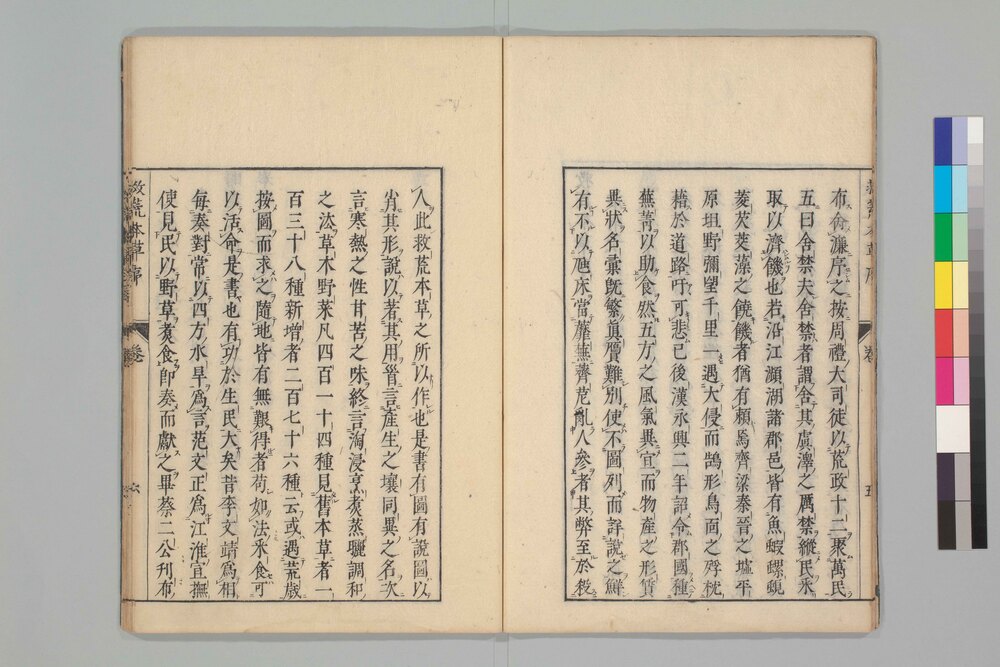 布舍濂序之按周禮大司徒以荒政十二聚萬民
五曰舍禁夫舍禁者謂舍其虞澤之厲禁縱民采
取以濟饑也若沿江瀕湖諸郡邑皆有魚蝦螺蜆
菱芡茭藻之饒饑者猶有賴焉齊梁秦晉之墟平
原坦野彌望千里一遇大侵而鵠形鳥面之殍枕
藉於道路吁可悲已後漢永興二年詔令郡國種
蕪菁以助食然五方之風氣異宜而物產之形質
異狀名彙既繁真贋難別使不圖列而詳說之鮮
有不以虺床當蘼蕪薺苨亂人參者其弊至於殺
五
人此救荒本草之所以作也是書有圖有說圖以
肖其形說以著其用首言產生之壤同異之名次
言寒熱之性甘苦之味終言淘浸烹煮蒸曬調和
之法草木野菜凡四百一十四種見舊本草者一
百三十八種新增者二百七十六種云或遇荒歲
按圖而求之隨地皆有無艱得者苟如法采食可
以活命是書也有功於生民大矣昔李文靖為相
每奏對常以四方水旱為言范文正為江淮宣撫
使見民以野草煑食即奏而獻之畢蔡二公刊布
救荒本草序 卷 六